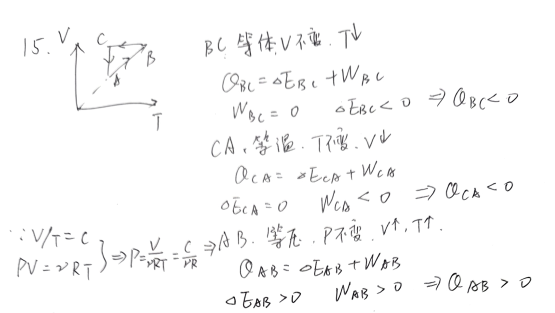 15. V
C
B
A
T
BC 等体, V不变. T↓
Q_BC = △E_BC + W_BC
W_BC = 0 △E_BC < 0 ⇒ Q_BC < 0
CA. 等温. T不变. V↓
Q_CA = △E_CA + W_CA
△E_CA = 0 W_CA < 0 ⇒ Q_CA < 0
∵ V/T = C
PV = νRT } ⇒ P = V/νRT = C/νR ⇒ AB. 等压. P不变. V↑, T↑.
Q_AB = △E_AB + W_AB
△E_AB > 0 W_AB > 0 ⇒ Q_AB > 0